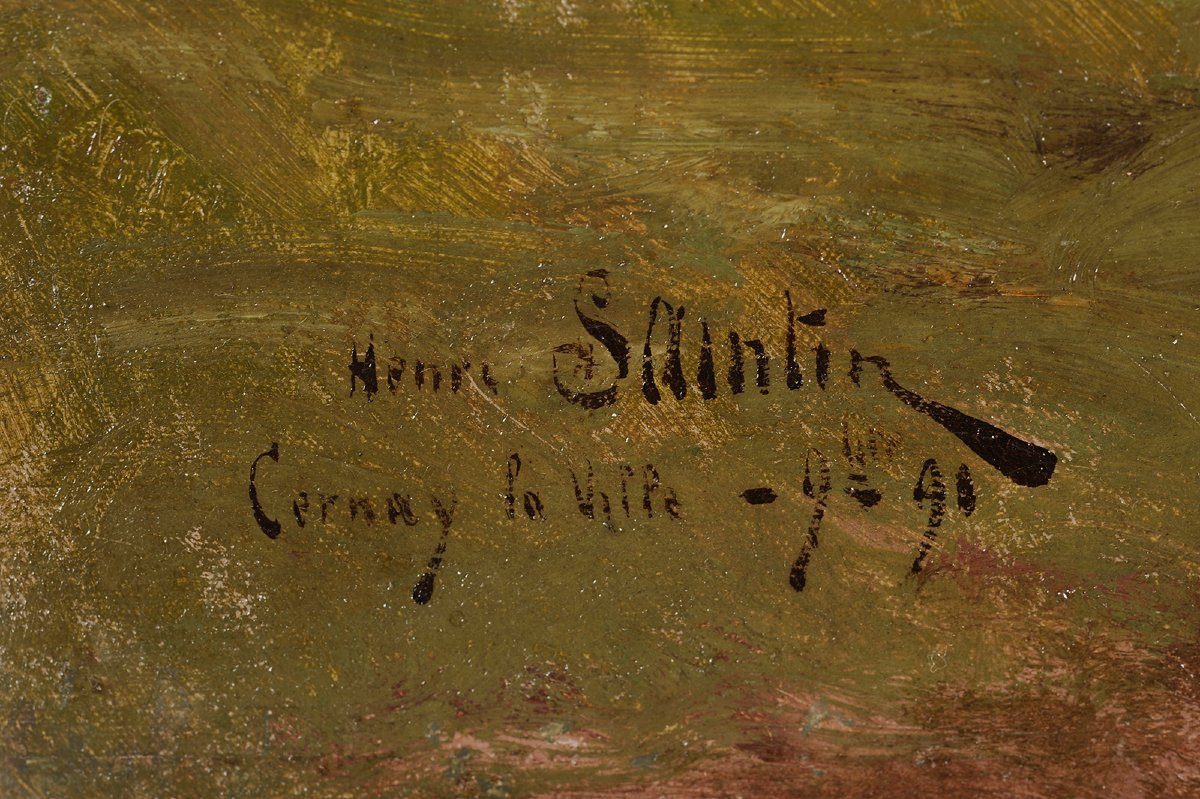 Henri Saintin
Cernay la Ville - 9bre 90